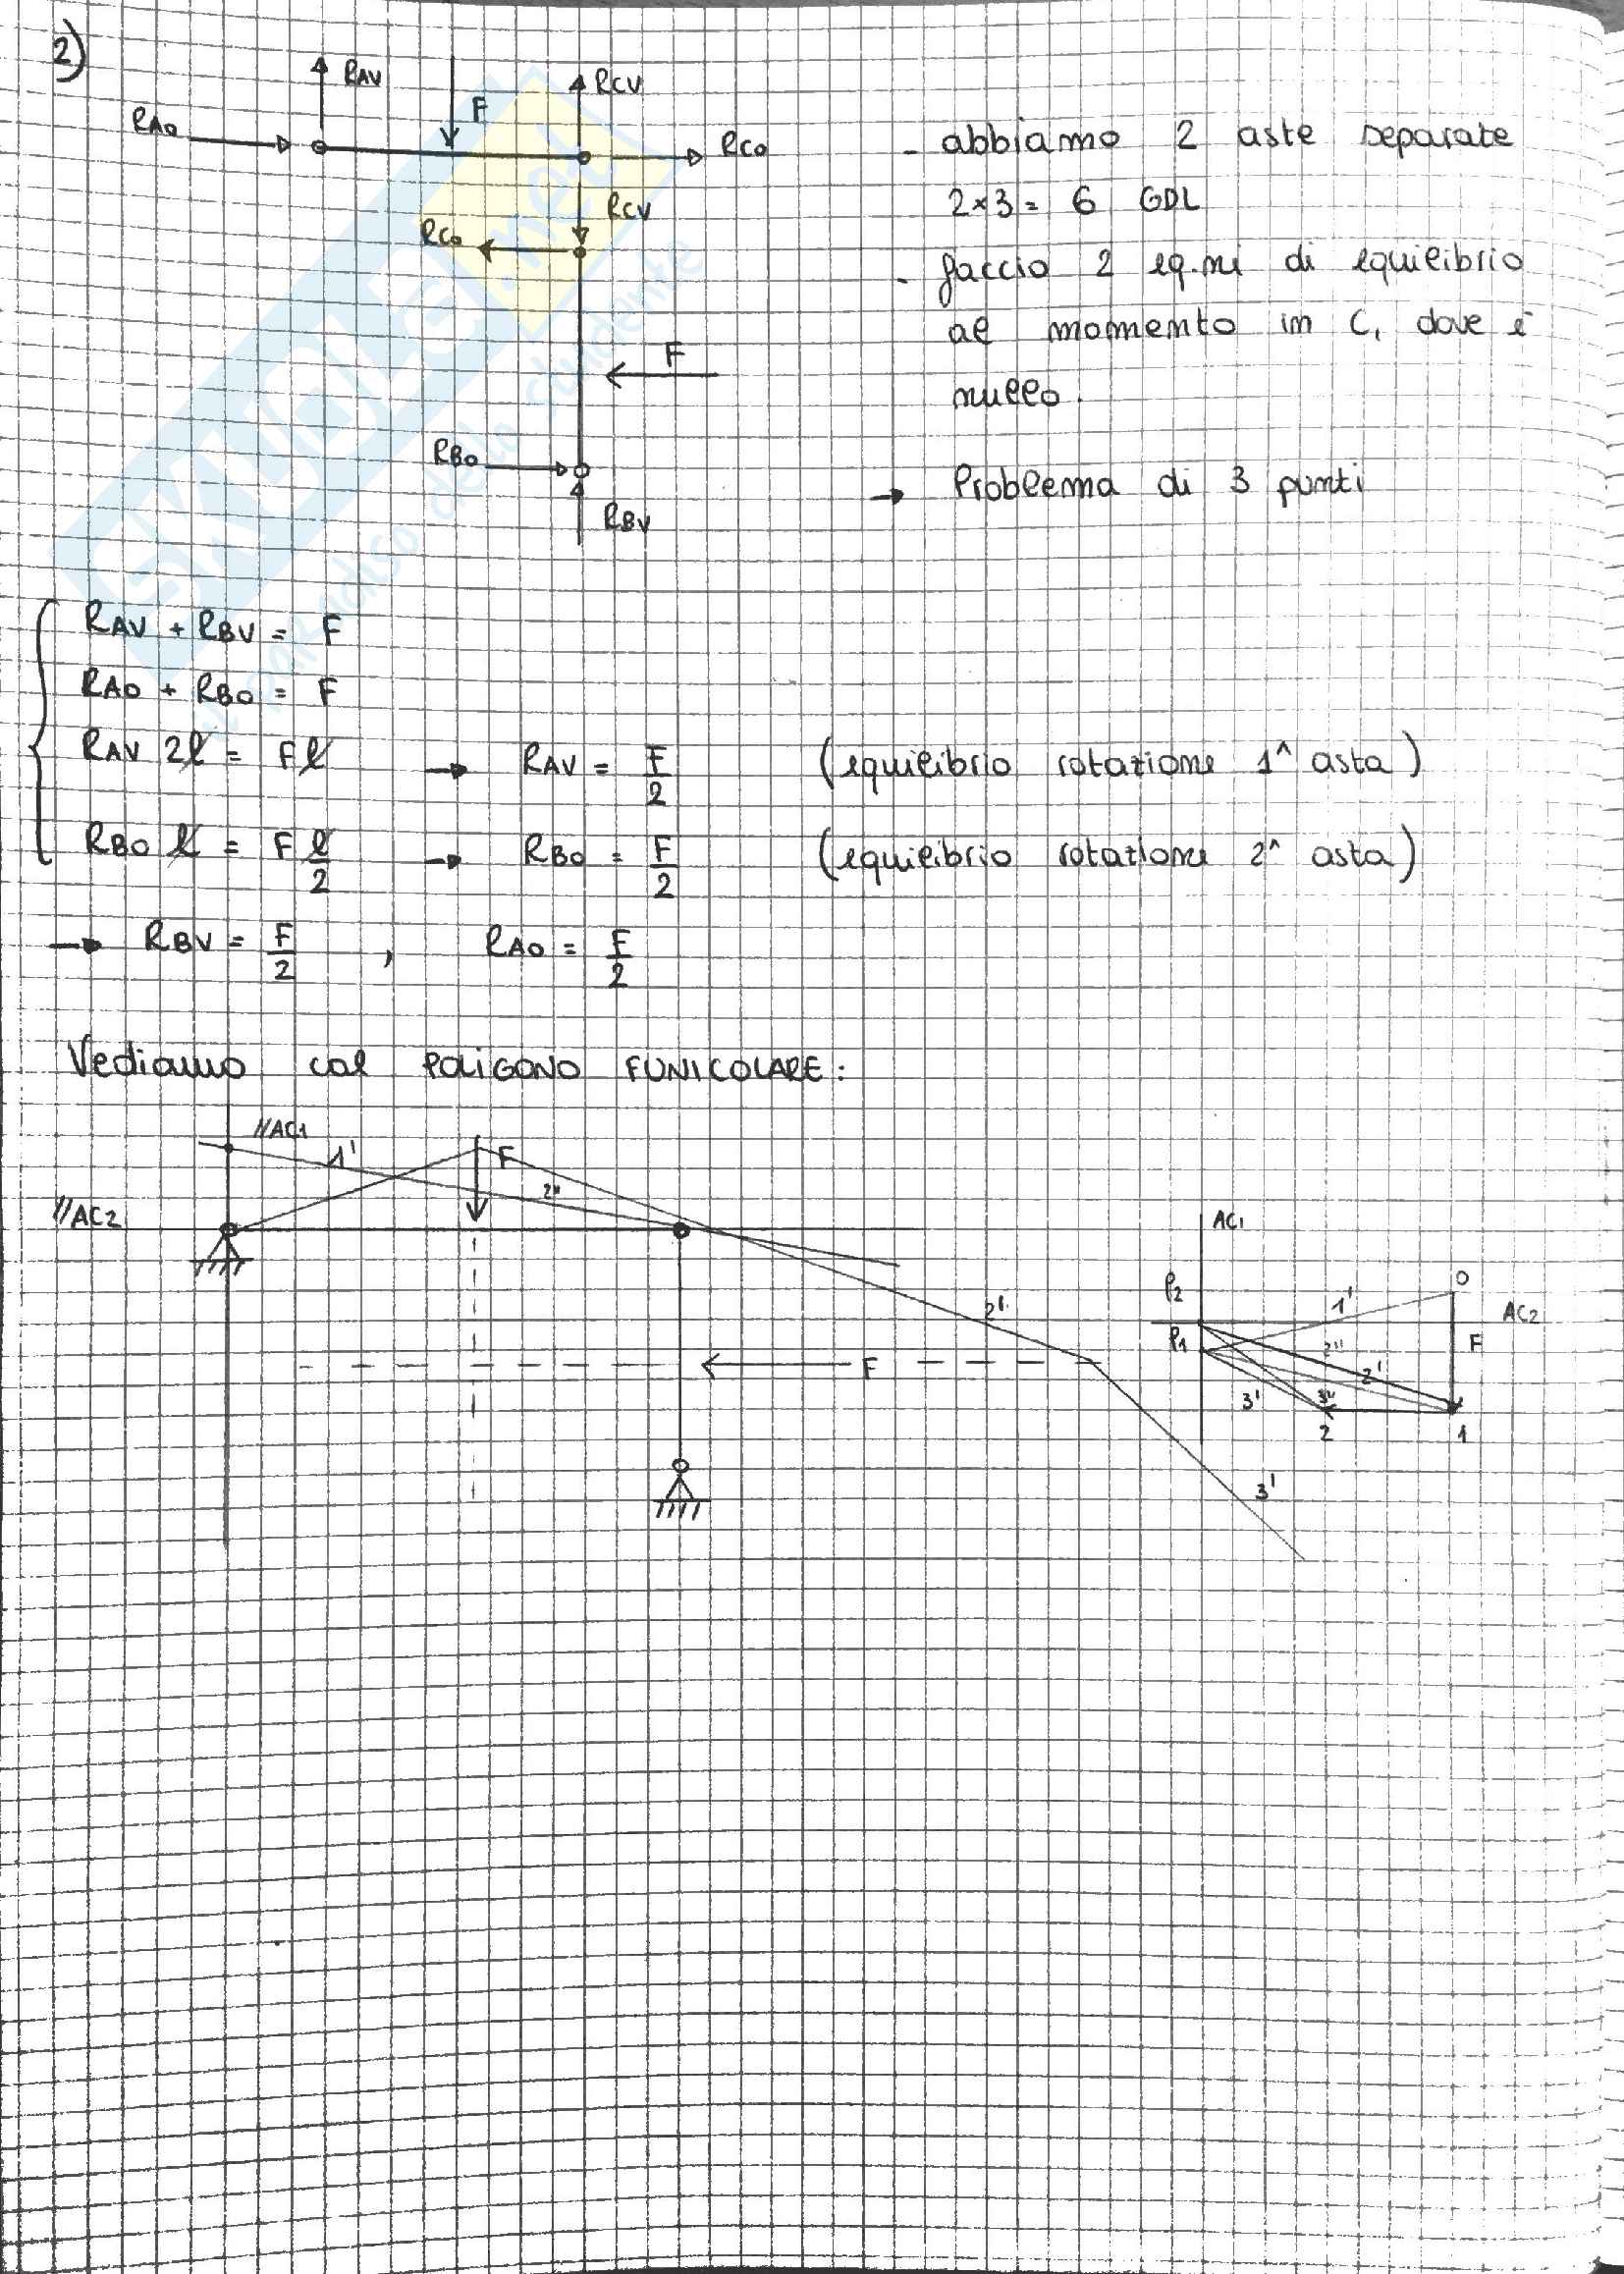 2)
RAV
F
RCV
RAO
RCO
RCV
RCO
F
RBO
RBV
- abbiamo 2 aste separate
2×3= 6 GDL
- faccio 2 eq.ni di equilibrio
al momento in C, dove è
nullo.
→ Problema di 3 punti
RAV + RBV = F
RAO + RBO = F
RAV 2l = Fl → RAV = F/2 (equilibrio rotazione 1^ asta)
RBO l = F l/2 → RBO = F/2 (equilibrio rotazione 2^ asta)
→ RBV = F/2 , RAO = F/2
Vediamo col POLIGONO FUNICOLARE:
//AC1
1'
F
2"
//AC2
2'
F
3'
AC1
P2
O
1'
AC2
P1
2"
F
2'
3'
3"
2
1
SKUOLA.net